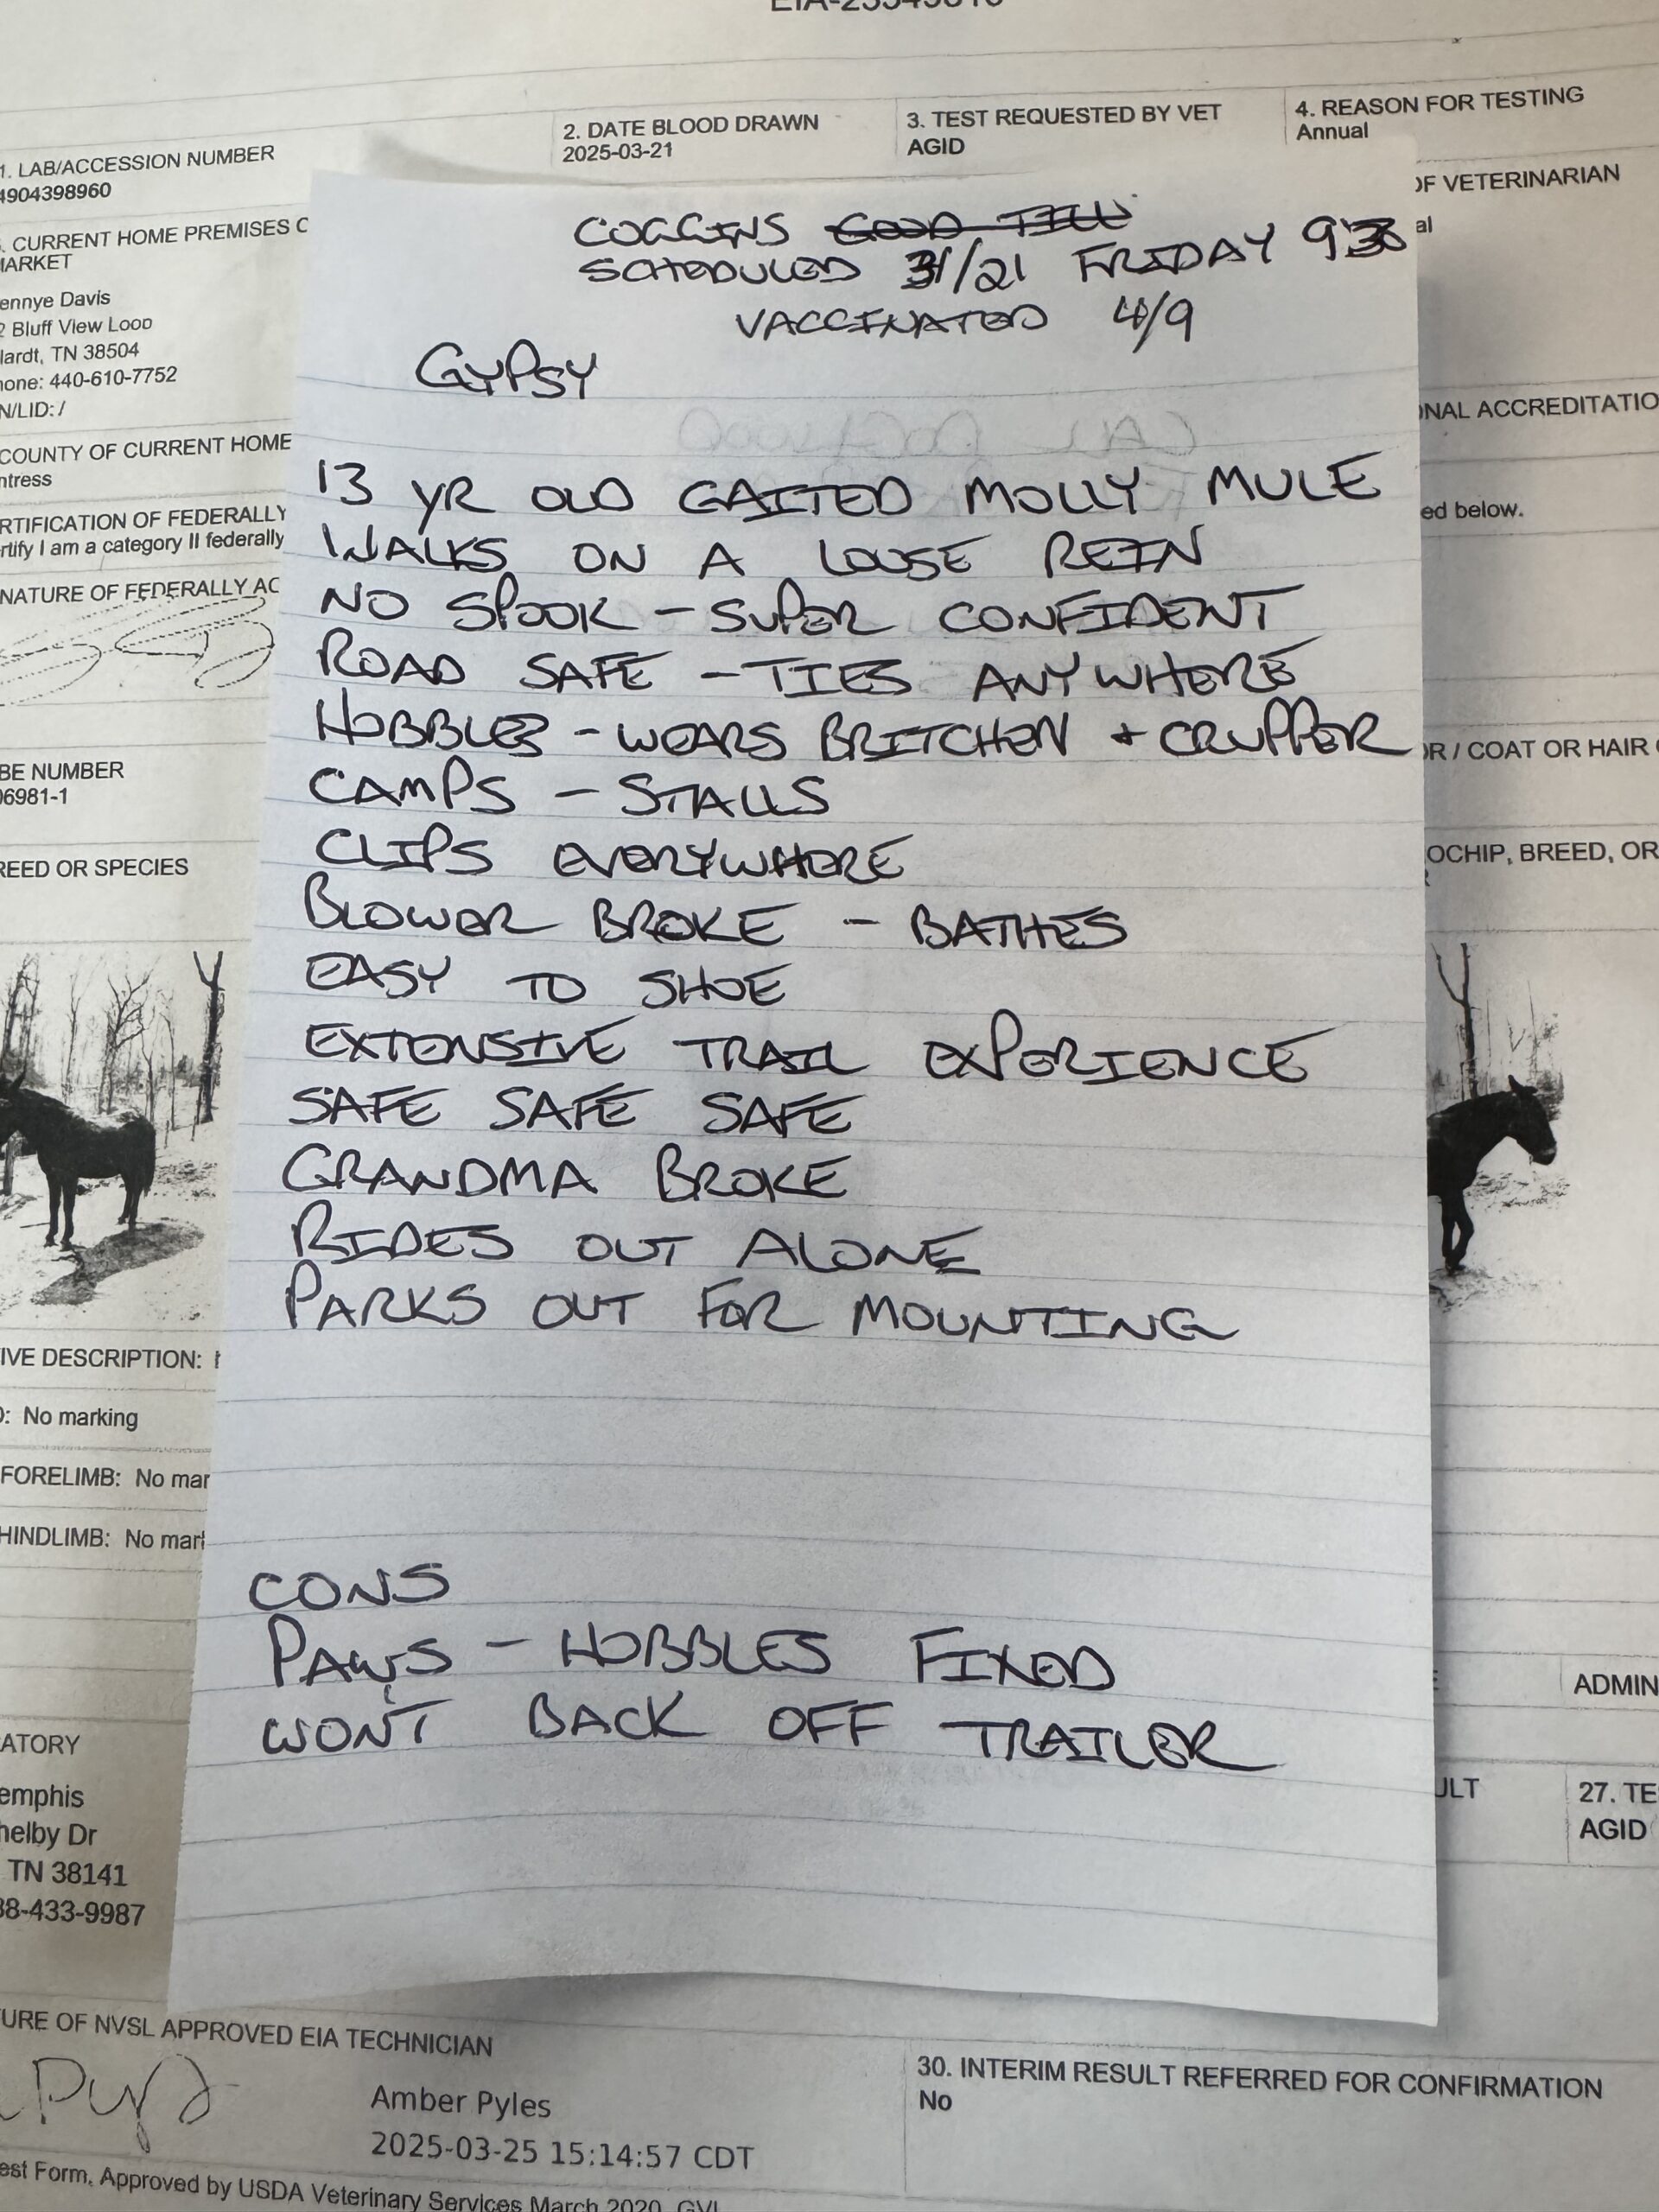 2. DATE BLOOD DRAWN
2025-03-21
3. TEST REQUESTED BY VET
AGID
4. REASON FOR TESTING
Annual
1. LAB/ACCESSION NUMBER
4904398960
CURRENT HOME PREMISES
MARKET
Davis
Bluff View Loop
TN 38504
440-610-7752
N/LID: /
COUNTY OF CURRENT HOME
OF FEDERALLY
I am a category II federally
OF FEDERALLY AC
BE NUMBER
06981-1
OR SPECIES
OF VETERINARIAN
al
ONAL ACCREDITATIO
ed below.
OR / COAT OR HAIR
OCHIP, BREED, OR
COGGINS GOOD TILL
SCHEDULED 3/21 FRIDAY 9:30
VACCINATED 4/9
GYPSY
13 YR OLD GAITED MOLLY MULE
WALKS ON A LOOSE REIN
NO SPOOK - SUPER CONFIDENT
ROAD SAFE - TIES ANYWHERE
HOBBLES - WEARS BRITCHEN + CRUPPER
CAMPS - STALLS
CLIPS EVERYWHERE
BLOWER BROKE - BATHES
EASY TO SHOE
EXTENSIVE TRAIL EXPERIENCE
SAFE SAFE SAFE
GRANDMA BROKE
RIDES OUT ALONE
PARKS OUT FOR MOUNTING
CONS
PAWS - HOBBLES FIXED
WON'T BACK OFF TRAILER
IVE DESCRIPTION:
No marking
FORELIMB: No mar
HINDLIMB: No mar
ATORY
emphis
helby Dr
TN 38141
38-433-9987
ADMIN
ULT
27. TE
AGID
URE OF NVSL APPROVED EIA TECHNICIAN
Amber Pyles
2025-03-25 15:14:57 CDT
30. INTERIM RESULT REFERRED FOR CONFIRMATION
No
est Form, Approved by USDA Veterinary Services March 2020